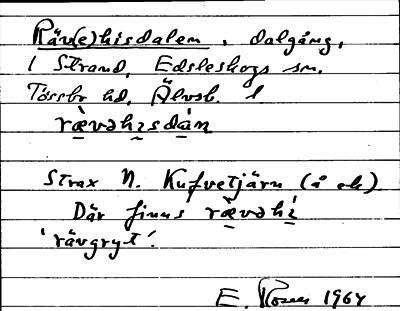 Räv(e)hisdalen, dalgång,
i Strand, Edsleskogs sn.
Tössbo hd, Älvsb. l
rævəhısdán
Strax N. Kufvetjärn (å ek)
Där finns rævəhí
'rävgryt'.
E. 1964